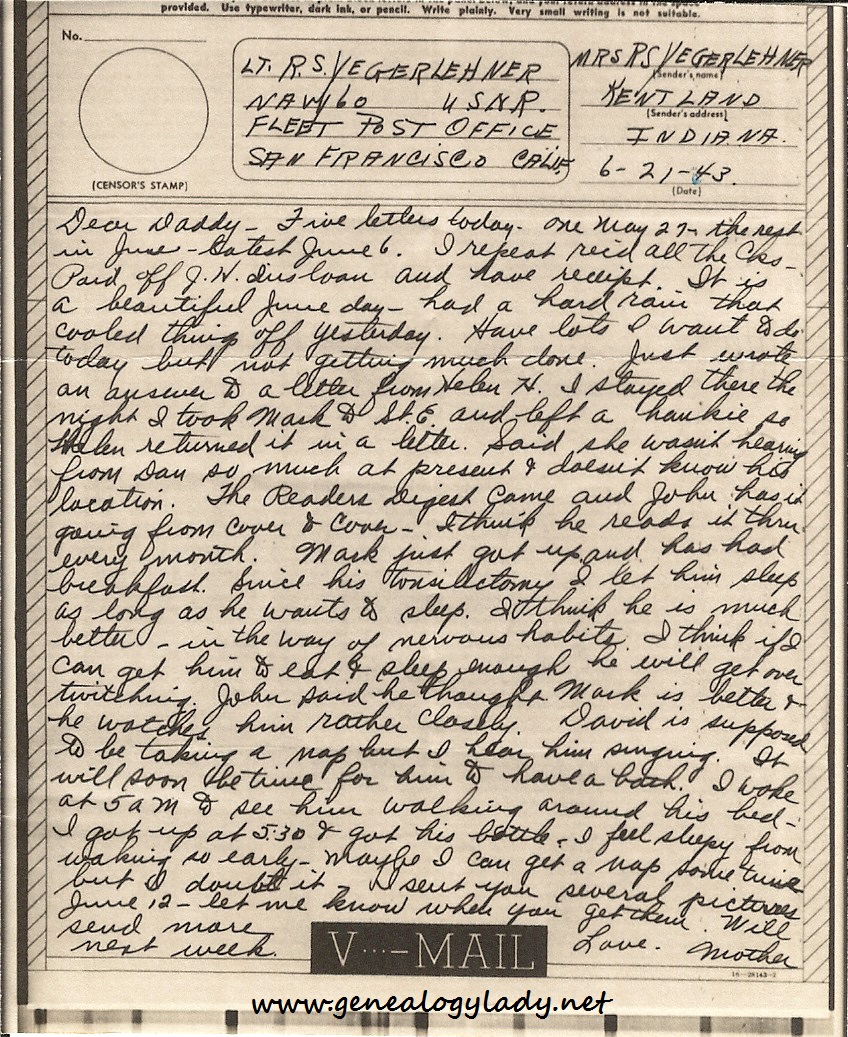 provided. Use typewriter, dark ink, or pencil. Write plainly. Very small writing is not suitable.
No.
(CENSOR'S STAMP)
LT. R.S. YEGERLEHNER
NAVY 60 USNR.
FLEET POST OFFICE
SAN FRANCISCO CALIF.
MRS RS YEGERLEHNER
(Sender's name)
KENTLAND
(Sender's address)
INDIANA.
6-21-43.
(Date)
Dear Daddy - Five letters today - one May 27 - the rest
in June - Latest June 6. I repeat recd all the Cks -
Paid off J.H. Ins loan and have receipt. It is
a beautiful June day - had a hard rain that
cooled things off yesterday. Have lots I want to do
today but not getting much done. Just wrote
an answer to a letter from Helen H. I stayed there the
night I took Mark to St. E. and left a hankie so
Helen returned it in a letter. Said she wasn't hearing
from Dan so much at present & doesn't know his
location. The Readers Digest came and John has it
going from cover to cover - I think he reads it thru
every month. Mark just got up and has had
breakfast. Since his tonsilectomy I let him sleep
as long as he wants to sleep. I think he is much
better - in the way of nervous habits. I think if I
can get him to eat & sleep enough he will get over
twitching. John said he thought Mark is better &
he watches him rather closely. David is supposed
to be taking a nap but I hear him singing. It
will soon be time for him to have a bath. I woke
at 5 AM to see him walking around his bed -
I got up at 5:30 & got his bottle. I feel sleepy from
waking so early - Maybe I can get a nap some time
but I doubt it - I sent you several pictures
June 12 - let me know when you get them. Will
send more
next week.
Love. Mother
V···—MAIL
16-28143-2
www.genealogylady.net